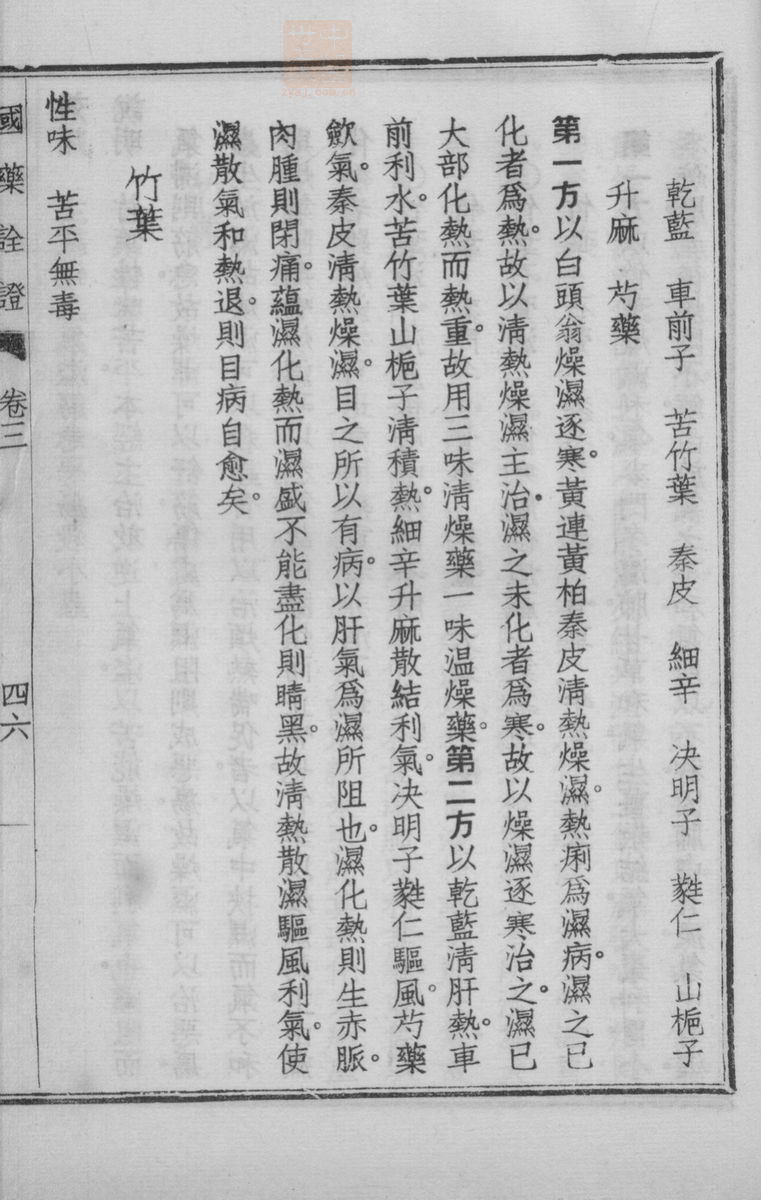 乾藍　車前子　苦竹葉　秦皮　細辛　决明子　蕤仁　山梔子
升麻　芍藥
第一方以白頭翁燥濕逐寒。黃連黃柏秦皮淸熱燥濕。熱痢爲濕病。濕之已
化者爲熱。故以淸熱燥濕主治。濕之未化者爲寒。故以燥濕逐寒治之。濕已
大部化熱而熱重。故用三味淸燥藥一味温燥藥。第二方以乾藍淸肝熱。車
前利水。苦竹葉山梔子淸積熱。細辛升麻散結利氣。决明子蕤仁驅風。芍藥
歛氣。秦皮淸熱燥濕。目之所以有病。以肝氣爲濕所阻也。濕化熱則生赤脈。
肉腫則閉痛。蘊濕化熱而濕盛不能盡化則睛黑。故淸熱散濕驅風利氣。使
濕散氣和熱退。則目病自愈矣。
竹葉
性味　苦平無毒
國藥詮證　卷三　四六